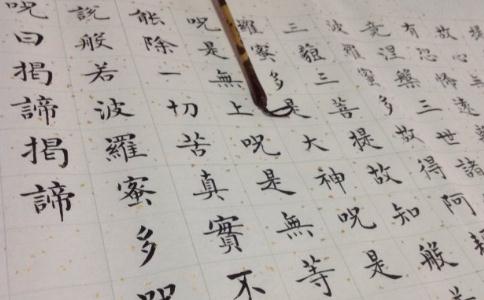 故心無
有恐怖遠
竟涅槃三世諸
波羅蜜多故得阿
三藐三菩提故知般
羅蜜多是大神咒是
咒是無上咒是無等
能除一切苦真實不
說般若波羅蜜多
咒曰揭諦揭諦